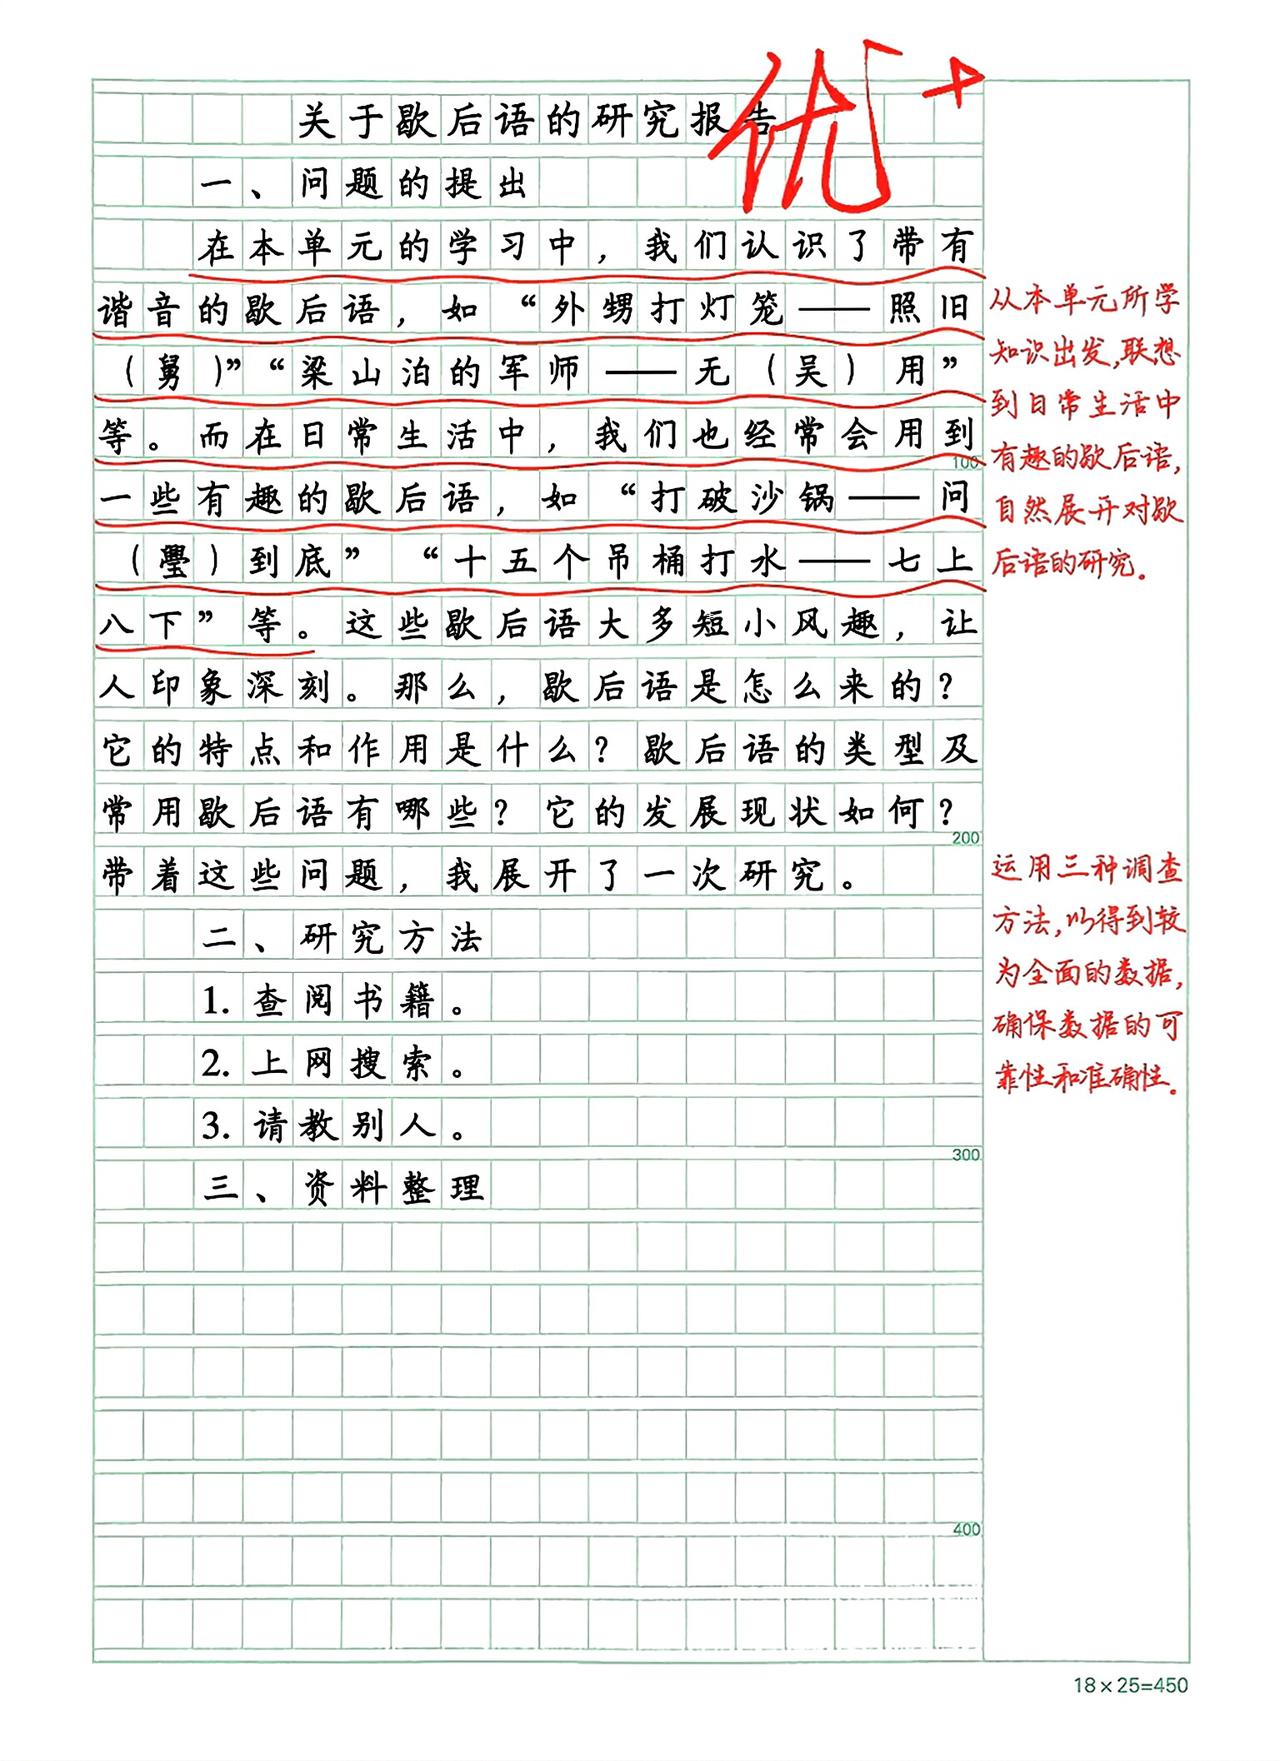 关于歇后语的研究报告
优+
一、问题的提出
在本单元的学习中，我们认识了带有
谐音的歇后语，如“外甥打灯笼——照旧
（舅）”“梁山泊的军师——无（吴）用”
等。而在日常生活中，我们也经常会用到
100
一些有趣的歇后语，如“打破沙锅——问
（璺）到底”“十五个吊桶打水——七上
八下”等。这些歇后语大多短小风趣，让
人印象深刻。那么，歇后语是怎么来的？
它的特点和作用是什么？歇后语的类型及
常用歇后语有哪些？它的发展现状如何？
200
带着这些问题，我展开了一次研究。
二、研究方法
1.查阅书籍。
2.上网搜索。
3.请教别人。
300
三、资料整理
400
从本单元所学
知识出发，联想
到日常生活中
有趣的歇后语，
自然展开对歇
后语的研究。
运用三种调查
方法，以得到较
为全面的数据，
确保数据的可
靠性和准确性。
18×25=450